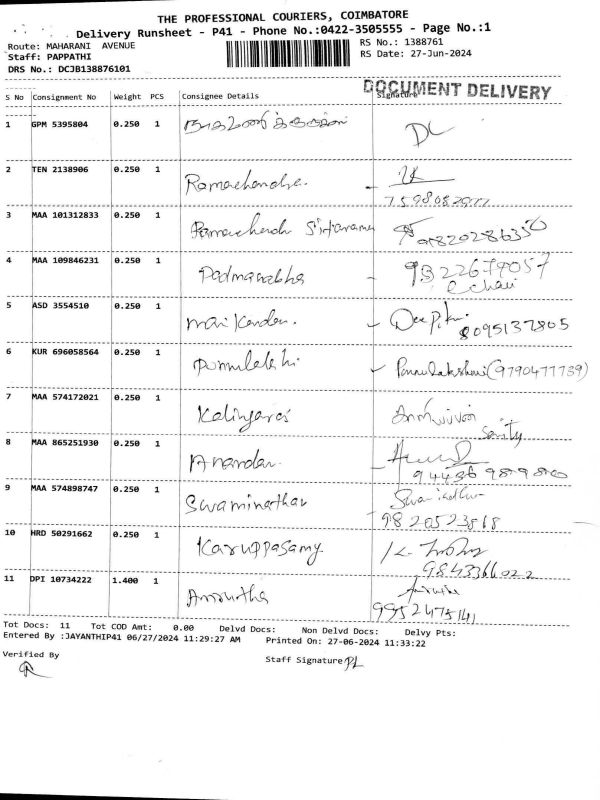 THE PROFESSIONAL COURIERS, COIMBATORE
Delivery Runsheet - P41 - Phone No.:0422-3505555 - Page No.:1
Route: MAHARANI AVENUE RS No.: 1388761
Staff: PAPPATHI RS Date: 27-Jun-2024
DRS No.: DCJB138876101
DOCUMENT DELIVERY
S No Consignment No Weight PCS Consignee Details Signature
1 GPM 5395804 0.250 1 DL
2 TEN 2138906 0.250 1 Ramachandra.
3 MAA 101312833 0.250 1 Ramachandr Sitaraman
4 MAA 109846231 0.250 1 Padmanabha
5 ASD 3554510 0.250 1 Manikandan. Deepthi 8095137805
6 KUR 696058564 0.250 1 Ponnulakshmi (9790477739)
7 MAA 574172021 0.250 1 Kalingaraj
8 MAA 865251930 0.250 1 Anandan.
9 MAA 574898747 0.250 1 Swaminathan
9820523568
10 HRD 50291662 0.250 1 Karuppasamy
9843366022
11 DPI 10734222 1.400 1 Amrutha
9952475141
Tot Docs: 11 Tot COD Amt: 0.00 Delvd Docs: Non Delvd Docs: Delvy Pts:
Entered By :JAYANTHIP41 06/27/2024 11:29:27 AM Printed On: 27-06-2024 11:33:22
Verified By Staff Signature